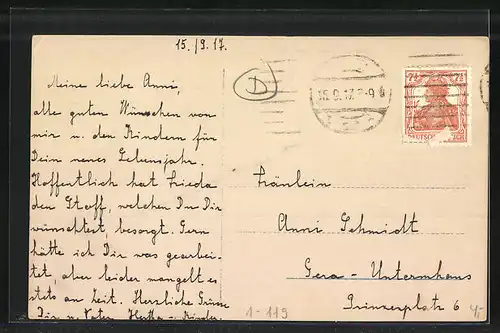 15./9.17.
Meine liebe Anni,
alle guten Wünschen von
mir u. den Kindern für
Dein neues Lebensjahr.
Hoffentlich hat Frieda
den Stoff, welchen Du Dir
wünschtest, besorgt. Gern
hätte ich Dir was gearbei-
tet aber leider mangelt es
stets an Zeit. Herzliche Grüsse
Dir u. Vater. Hertha u. Kinder.
D
15.9.17
7½ 7½
Fräulein
Anni Schmidt
Gera-Untermhaus
Prinzenplatz 6
1-119
4,-